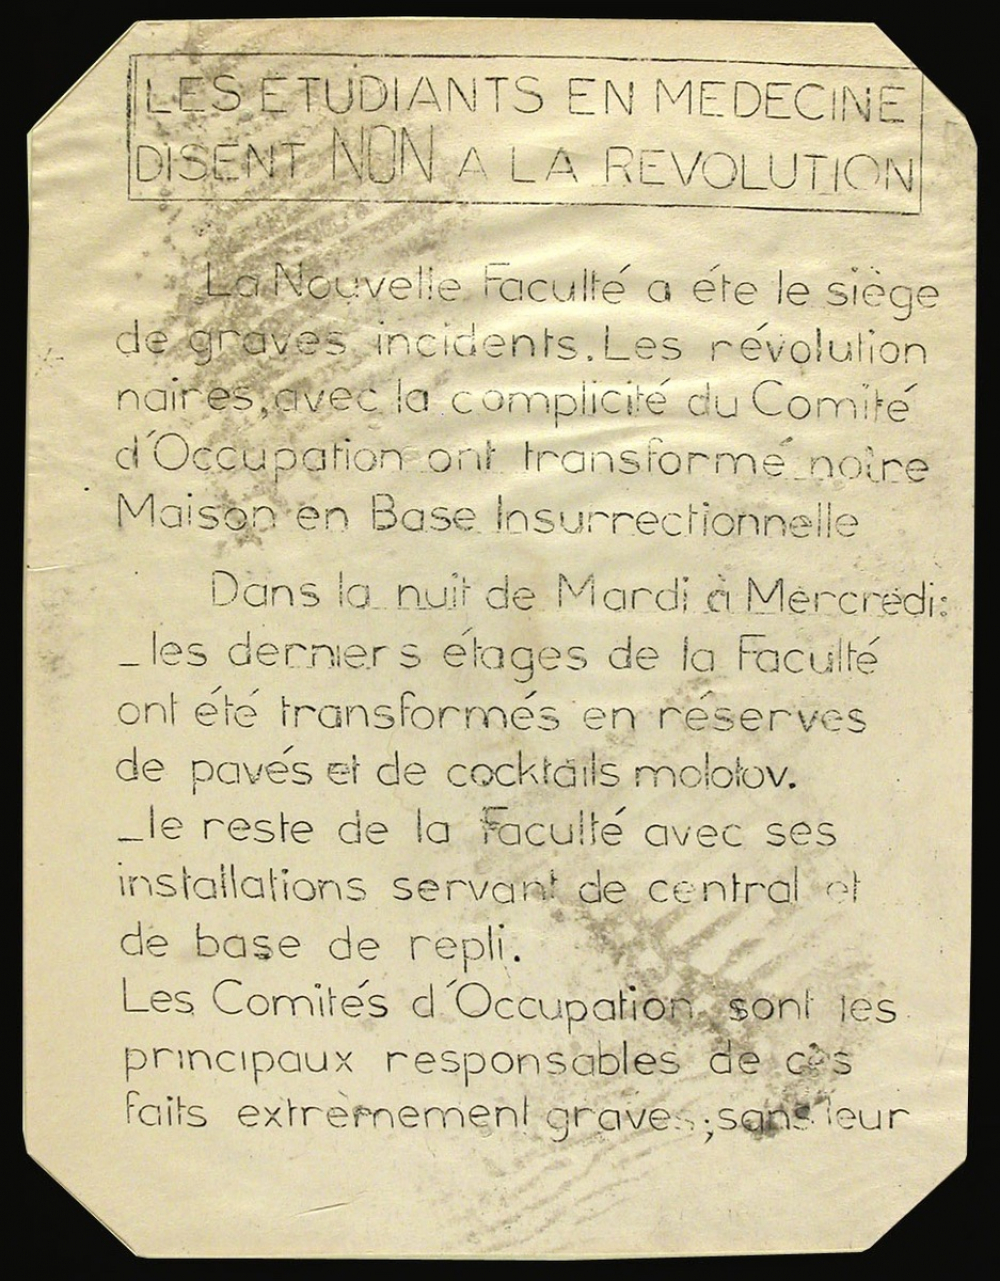 LES ETUDIANTS EN MEDECINE
DISENT NON A LA REVOLUTION
La Nouvelle Faculté a éte le siège
de graves incidents. Les révolution
naires, avec la complicité du Comité
d'Occupation ont transformé notre
Maison en Base Insurrectionnelle
Dans la nuit de Mardi à Mercredi:
_ les derniers étages de la Faculté
ont été transformés en réserves
de pavés et de cocktails molotov.
_ le reste de la Faculté avec ses
installations servant de central et
de base de repli.
Les Comités d'Occupation sont les
principaux responsables de ces
faits extrèmement graves; sans leur